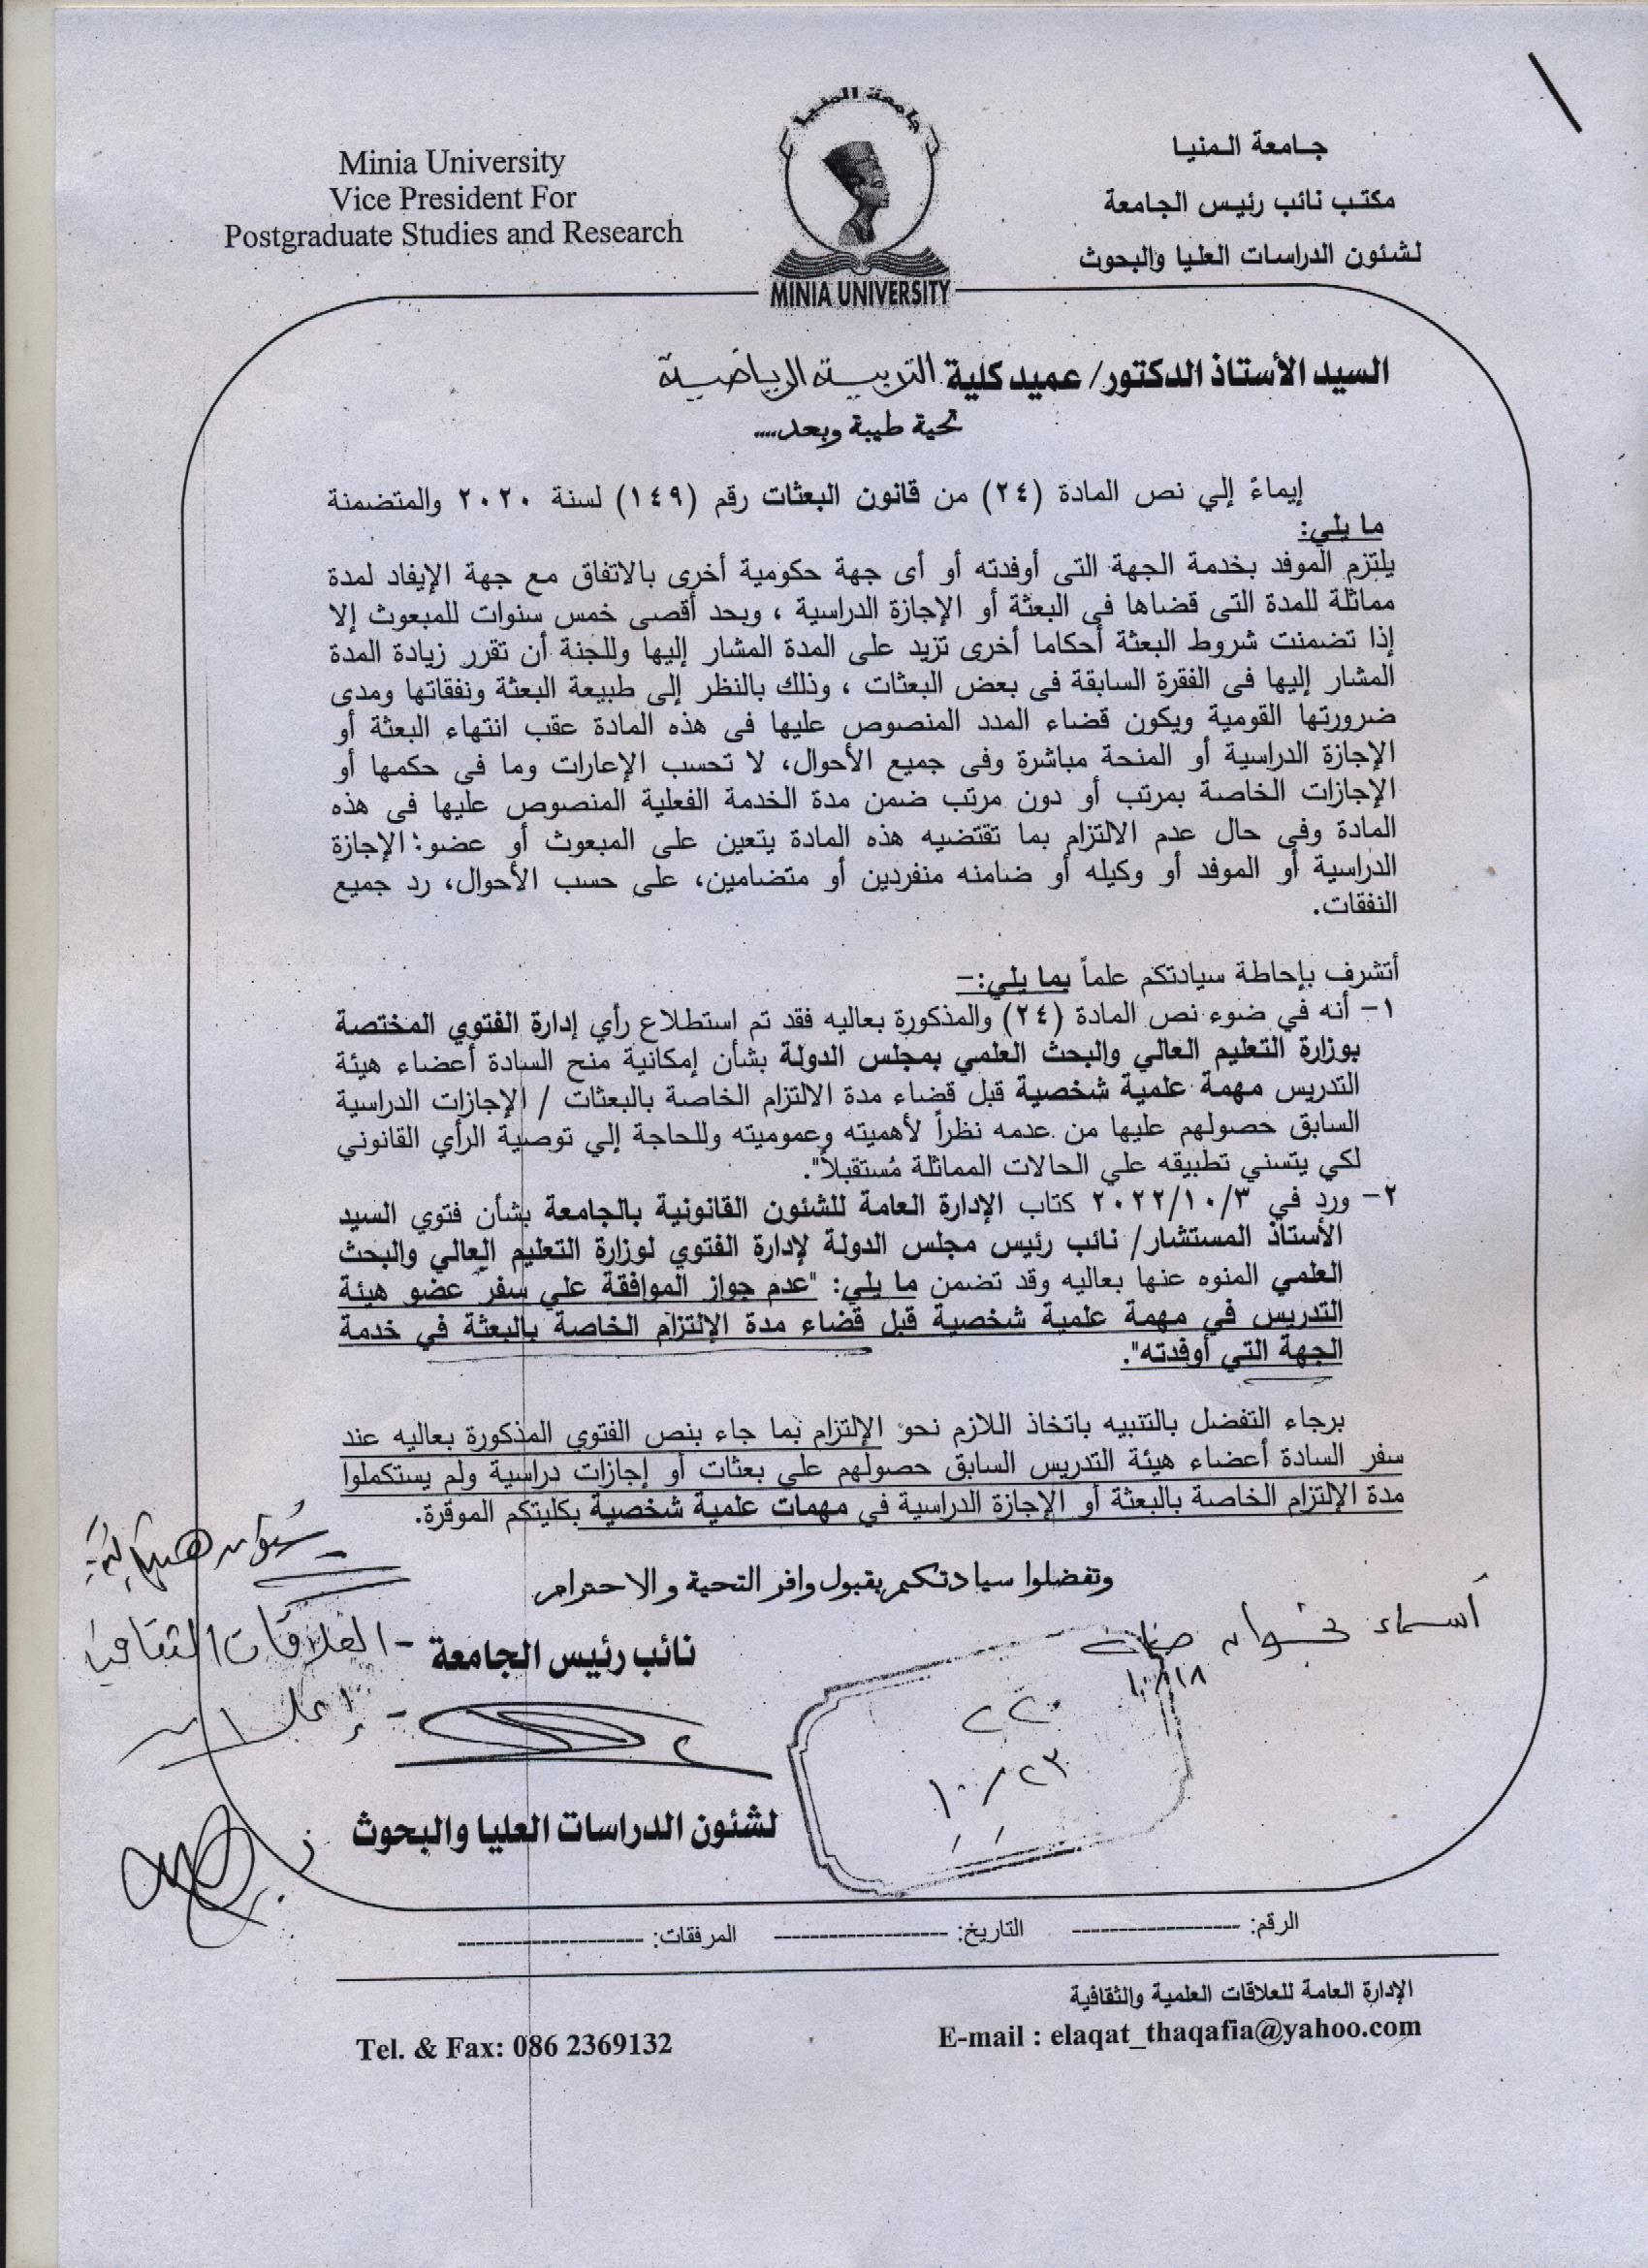 Minia University
Vice President For
Postgraduate Studies and Research
جامعة المنيا
MINIA UNIVERSITY
جامعة المنيا
مكتب نائب رئيس الجامعة
لشئون الدراسات العليا والبحوث
السيد الأستاذ الدكتور/ عميد كلية التربية الرياضية
تحية طيبة وبعد....
إيماءً إلي نص المادة (٢٤) من قانون البعثات رقم (١٤٩) لسنة ٢٠٢٠ والمتضمنة
ما يلي:
يلتزم الموفد بخدمة الجهة التى أوفدته أو أى جهة حكومية أخرى بالاتفاق مع جهة الإيفاد لمدة
مماثلة للمدة التى قضاها فى البعثة أو الإجازة الدراسية ، وبحد أقصى خمس سنوات للمبعوث إلا
إذا تضمنت شروط البعثة أحكاما أخرى تزيد على المدة المشار إليها وللجنة أن تقرر زيادة المدة
المشار إليها فى الفقرة السابقة فى بعض البعثات ، وذلك بالنظر إلى طبيعة البعثة ونفقاتها ومدى
ضرورتها القومية ويكون قضاء المدد المنصوص عليها فى هذه المادة عقب انتهاء البعثة أو
الإجازة الدراسية أو المنحة مباشرة وفى جميع الأحوال، لا تحسب الإعارات وما فى حكمها أو
الإجازات الخاصة بمرتب أو دون مرتب ضمن مدة الخدمة الفعلية المنصوص عليها فى هذه
المادة وفى حال عدم الالتزام بما تقتضيه هذه المادة يتعين على المبعوث أو عضو الإجازة
الدراسية أو الموفد أو وكيله أو ضامنه منفردين أو متضامين، على حسب الأحوال، رد جميع
النفقات.
أتشرف بإحاطة سيادتكم علماً بما يلي:-
١- أنه في ضوء نص المادة (٢٤) والمذكورة بعاليه فقد تم استطلاع رأي إدارة الفتوي المختصة
بوزارة التعليم العالي والبحث العلمي بمجلس الدولة بشأن إمكانية منح السادة أعضاء هيئة
التدريس مهمة علمية شخصية قبل قضاء مدة الالتزام الخاصة بالبعثات / الإجازات الدراسية
السابق حصولهم عليها من عدمه نظراً لأهميته وعموميته وللحاجة إلي توصية الرأي القانوني
لكي يتسني تطبيقه علي الحالات المماثلة مُستقبلاً".
٢- ورد في ٢٠٢٢/١٠/٣ كتاب الإدارة العامة للشئون القانونية بالجامعة بشأن فتوي السيد
الأستاذ المستشار/ نائب رئيس مجلس الدولة لإدارة الفتوي لوزارة التعليم العالي والبحث
العلمي المنوه عنها بعاليه وقد تضمن ما يلي: "عدم جواز الموافقة علي سفر عضو هيئة
التدريس في مهمة علمية شخصية قبل قضاء مدة الإلتزام الخاصة بالبعثة في خدمة
الجهة التي أوفدته".
برجاء التفضل بالتنبيه باتخاذ اللازم نحو الإلتزام بما جاء بنص الفتوي المذكورة بعاليه عند
سفر السادة أعضاء هيئة التدريس السابق حصولهم علي بعثات أو إجازات دراسية ولم يستكملوا
مدة الإلتزام الخاصة بالبعثة أو الإجازة الدراسية في مهمات علمية شخصية بكليتكم الموقرة.
وتفضلوا سيادتكم بقبول وافر التحية والاحترام
أسماء
١٠/١٨
- العلاقات الثقافية
نائب رئيس الجامعة
٢٢٠
١٠/٢٣
لشئون الدراسات العليا والبحوث
الرقم: ------------------ التاريخ: ------------------ المرفقات: -------------------
الإدارة العامة للعلاقات العلمية والثقافية
E-mail : elaqat_thaqafia@yahoo.com
Tel. & Fax: 086 2369132